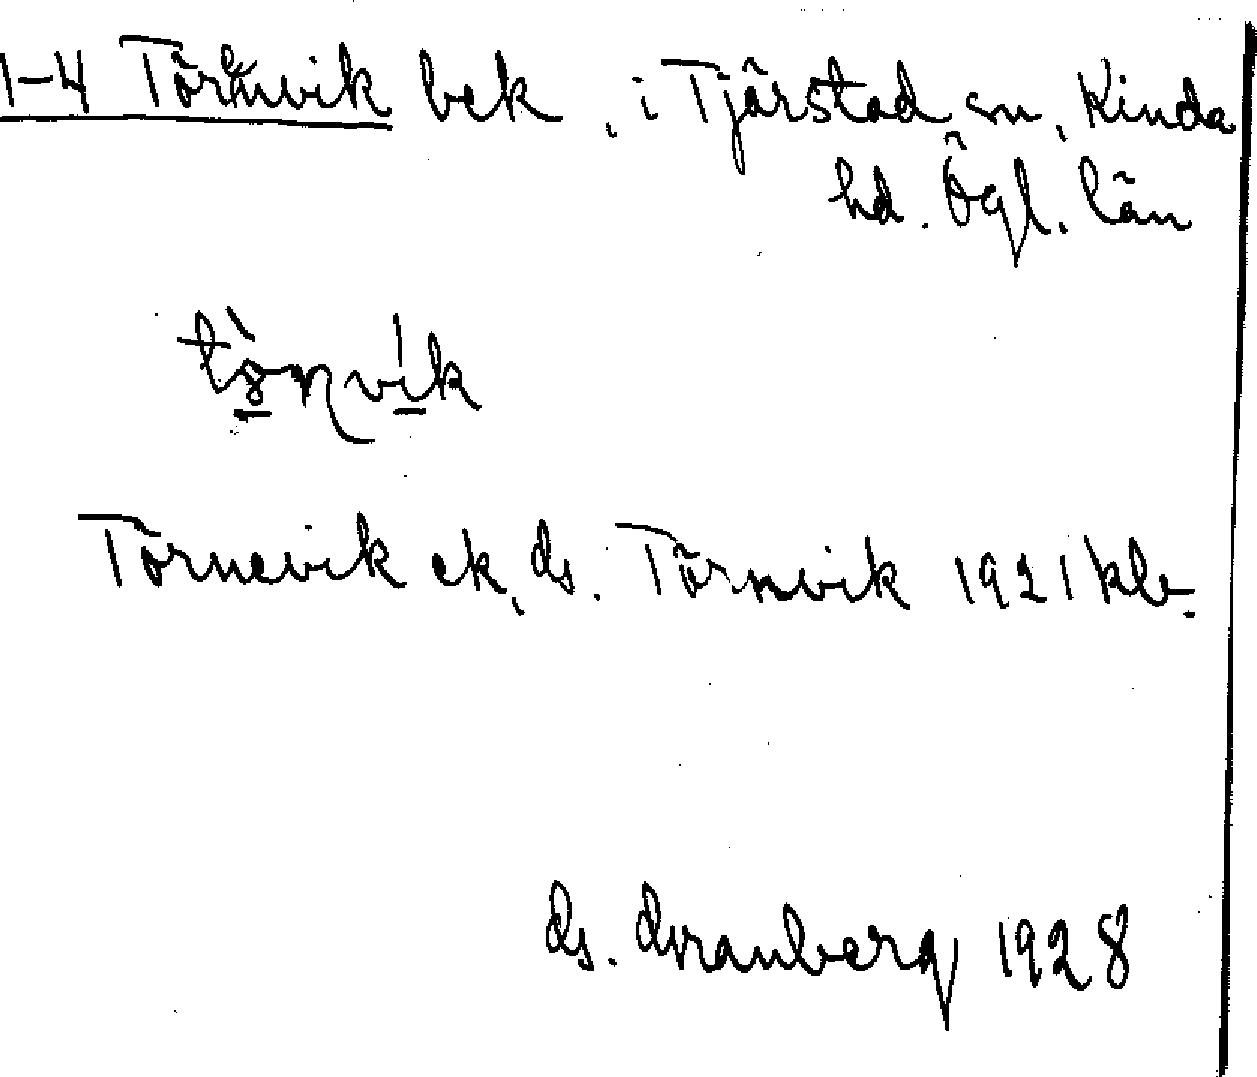 1-4 Törnevik bek, i Tjärstad sn, Kinda
hd. Ögl. län
Törnevik ek, ds. Törnvik 1921 klb.
ds. Svanberg 1928